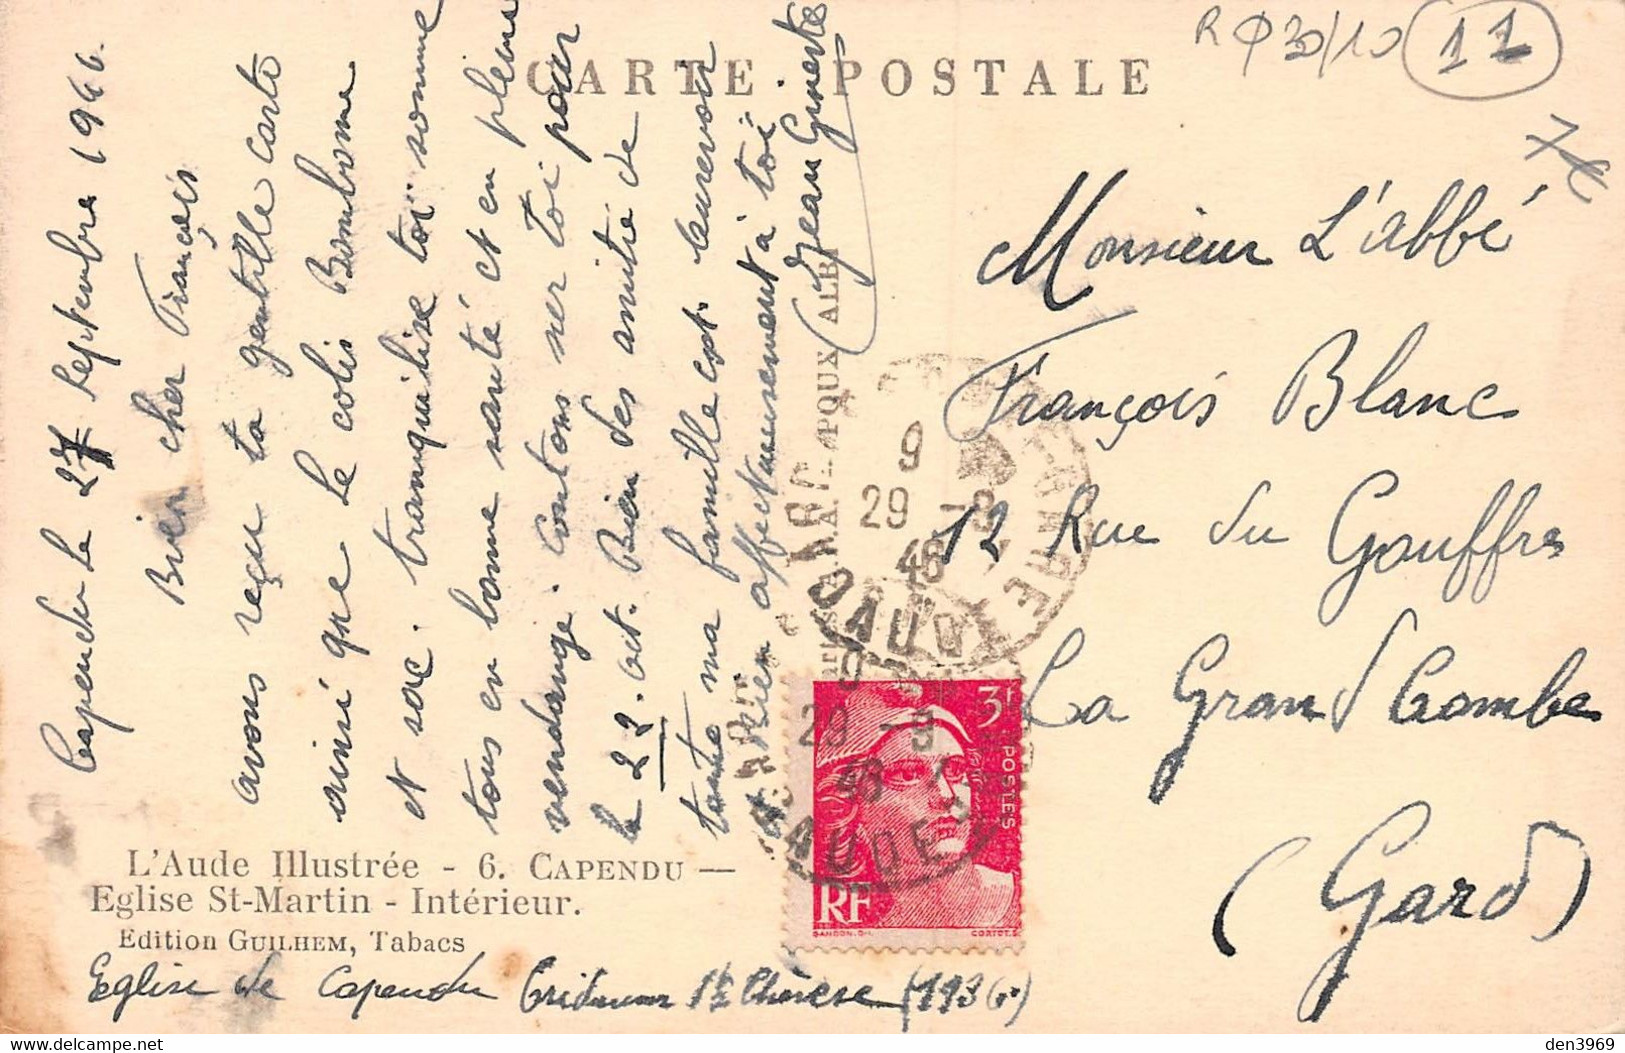 CARTE POSTALE
R Φ30/10
11
Capendu le 27 septembre 1946.
Bien cher François
avons reçu ta gentille carte
ainsi que le colis Bonbonne
et sac. tranquilise toi somme
tous en bonne santé et en pleine
vendange. Contons ser toi pour
le 22. Oct. Bien des amitié de
toute ma famille est. leurevoir
et bien affectueusement à toi.
Jean Gineste
Monsieur L'abbé
François Blanc
12 Rue du Gouffre
La Grand Combe
(Gard)
9
29 -9
46
AUDE
GARE
29 -9
46
AUDE
3f
POSTES
RF
GANDON. DEL
CORTOT. S.
POUX ALBI
L'Aude Illustrée - 6. CAPENDU —
Eglise St-Martin - Intérieur.
Edition GUILHEM, Tabacs
Eglise de Capendu Ste Thérèse (193
den3969